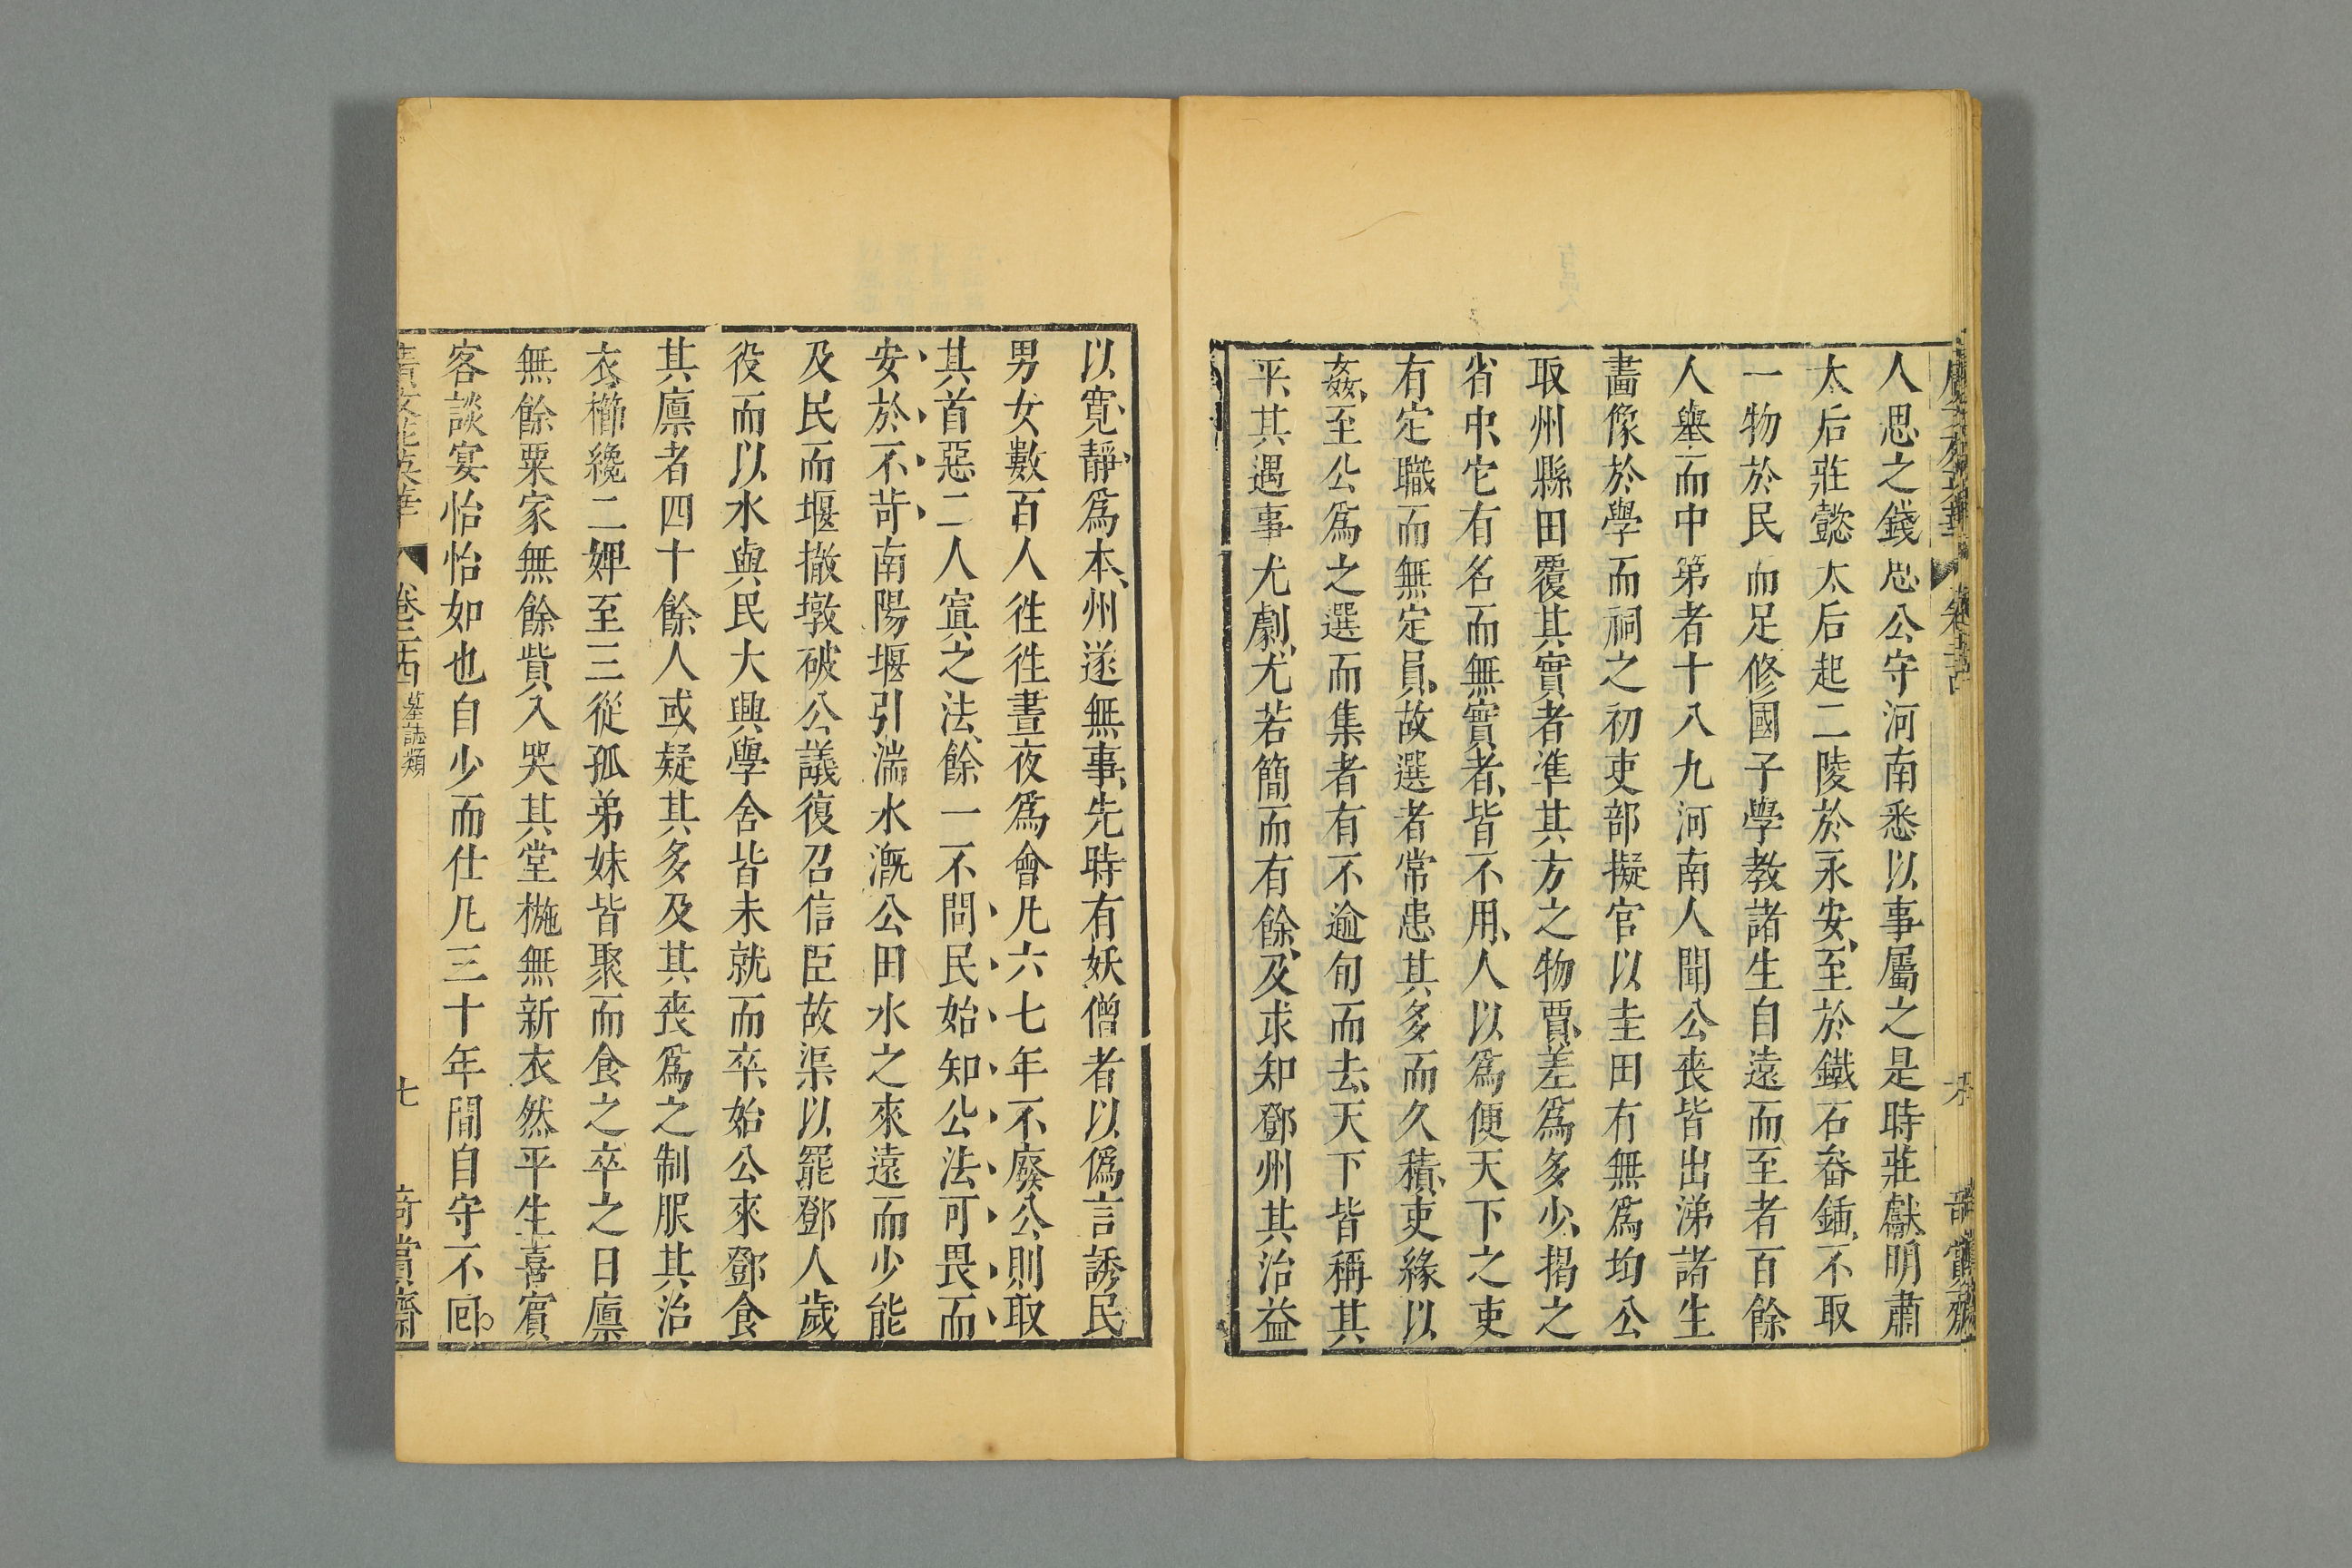 人思之錢思公守河南悉以事屬之是時莊獻明肅
太后莊懿太后起二陵於永安至於鐵石畚鍤不取
一物於民而足修國子學教諸生自遠而至者百餘
人舉而中第者十八九河南人聞公喪皆出涕諸生
畫像於學而祠之初吏部擬官以圭田有無為均公
取州縣田覆其實者準其方之物賈差為多少揭之
省中它有名而無實者皆不用人以為便天下之吏
有定職而無定員故選者常患其多而久積吏緣以
姦至公為之選而集者有不逾旬而去天下皆稱其
平其遇事尤劇尤若簡而有餘及求知鄧州其治益
以寬靜為本州遂無事先時有妖僧者以偽言誘民
男女數百人往往晝夜為會凡六七年不廢公則取
其首惡二人寘之法餘一不問民始知公法可畏而
安於不苛南陽堰引湍水溉公田水之來遠而少能
及民而堰撤墩破公議復召信臣故渠以罷鄧人歲
役而以水與民大興學舍皆未就而卒始公來鄧食
其廪者四十餘人或疑其多及其喪為之制服其治
衣櫛纔二婢至三從孤弟妹皆聚而食之卒之日廪
無餘粟家無餘貲入哭其堂椸無新衣然平生喜賓
客談宴怡怡如也自少而仕凡三十年間自守不回
卷三百 墓誌類 七 奇賞齋